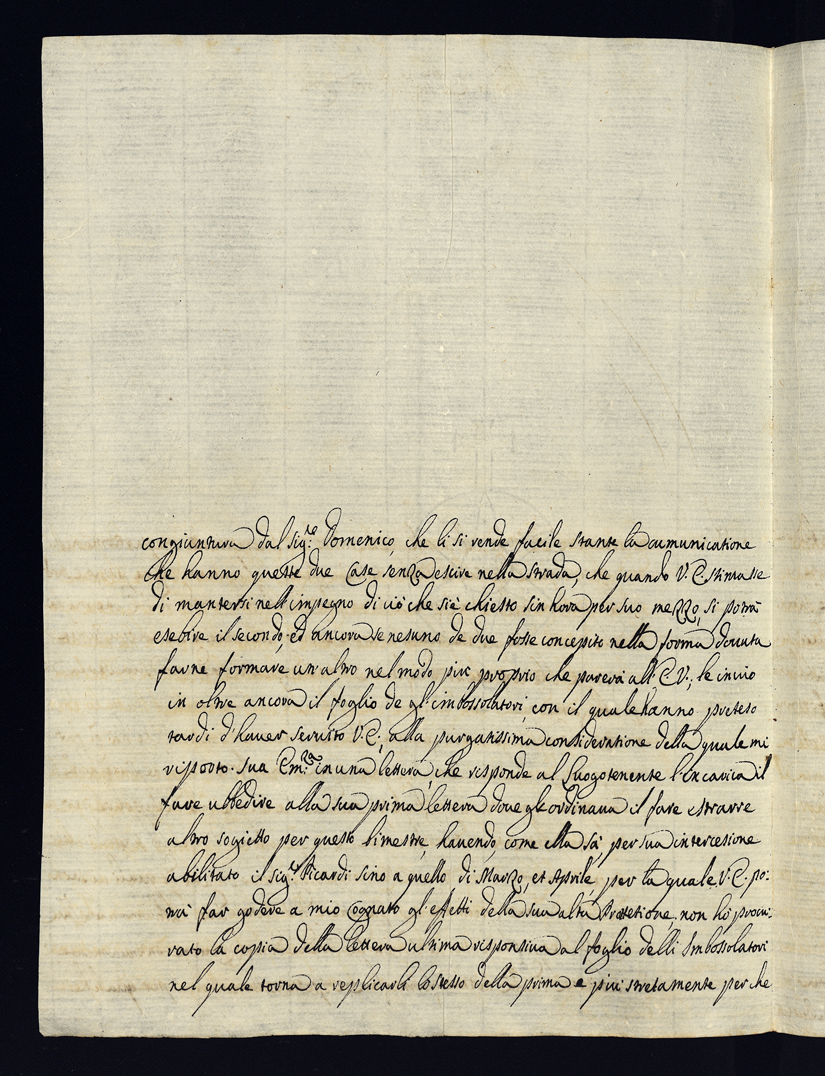 congiuntura dal Sig.re Domenico, che li si rende facile stante la cumunicatione
che hanno queste due Case senza escire nella strada, che quando V.E. stimasse
di mantersi nell'impegno di ciò che si è chiesto sin hora per suo mezzo, si potrà
esebire il secondo, ed ancora se nesuno de due fosse concepito nella forma douuta
farne formare un'altro nel modo più proprio che parerà all'E.V.; le inuio
in oltre ancora il foglio de gl'imbossolatori, con il quale hanno preteso
tardi d'hauer seruito V.E.; alla purgatissima consideratione della quale mi
riporto. Sua Em.za in una lettera, che risponde al Luogotenente l'incarica il
fare ubbedire alla sua prima lettera doue gl'ordinaua il fare estrarre
altro sogietto per questo bimestre, hauendo, come ella sà, per sua intercesione
abilitato il Sig.r Ricardi sino a quello di Marzo, et Aprile, per la quale V.E. po:
trà far godere a mio Cognato gl'effetti della sua alta Protetione, non hò procu:
rato la copia della lettera ultima responsiua al foglio delli Imbossolatori
nel quale torna a replicarli lo stesso della prima e più stretamente per che